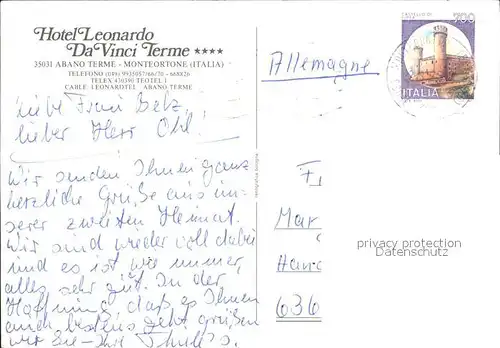 Hotel Leonardo
Da Vinci Terme ★★★★
35031 ABANO TERME - MONTEORTONE (ITALIA)
TELEFONO (049) 9935057/66/70 - 668826
TELEX 430390 TEOTEL I
CABLE LEONARDTEL ABANO TERME
Allemagne
700
ITALIA
Liebe Frau
lieber Herr
Wir senden Ihnen ganz
herzliche Grüße aus un-
serer zweiten Heimat.
Wir sind wieder voll dabei
und es ist wie immer,
alles sehr gut. In der
Hoffnung, daß es Ihnen
auch bestens geht grüßen
wir Sie - Ihre
F
Mar
Hand
636
privacy protection
Datenschutz